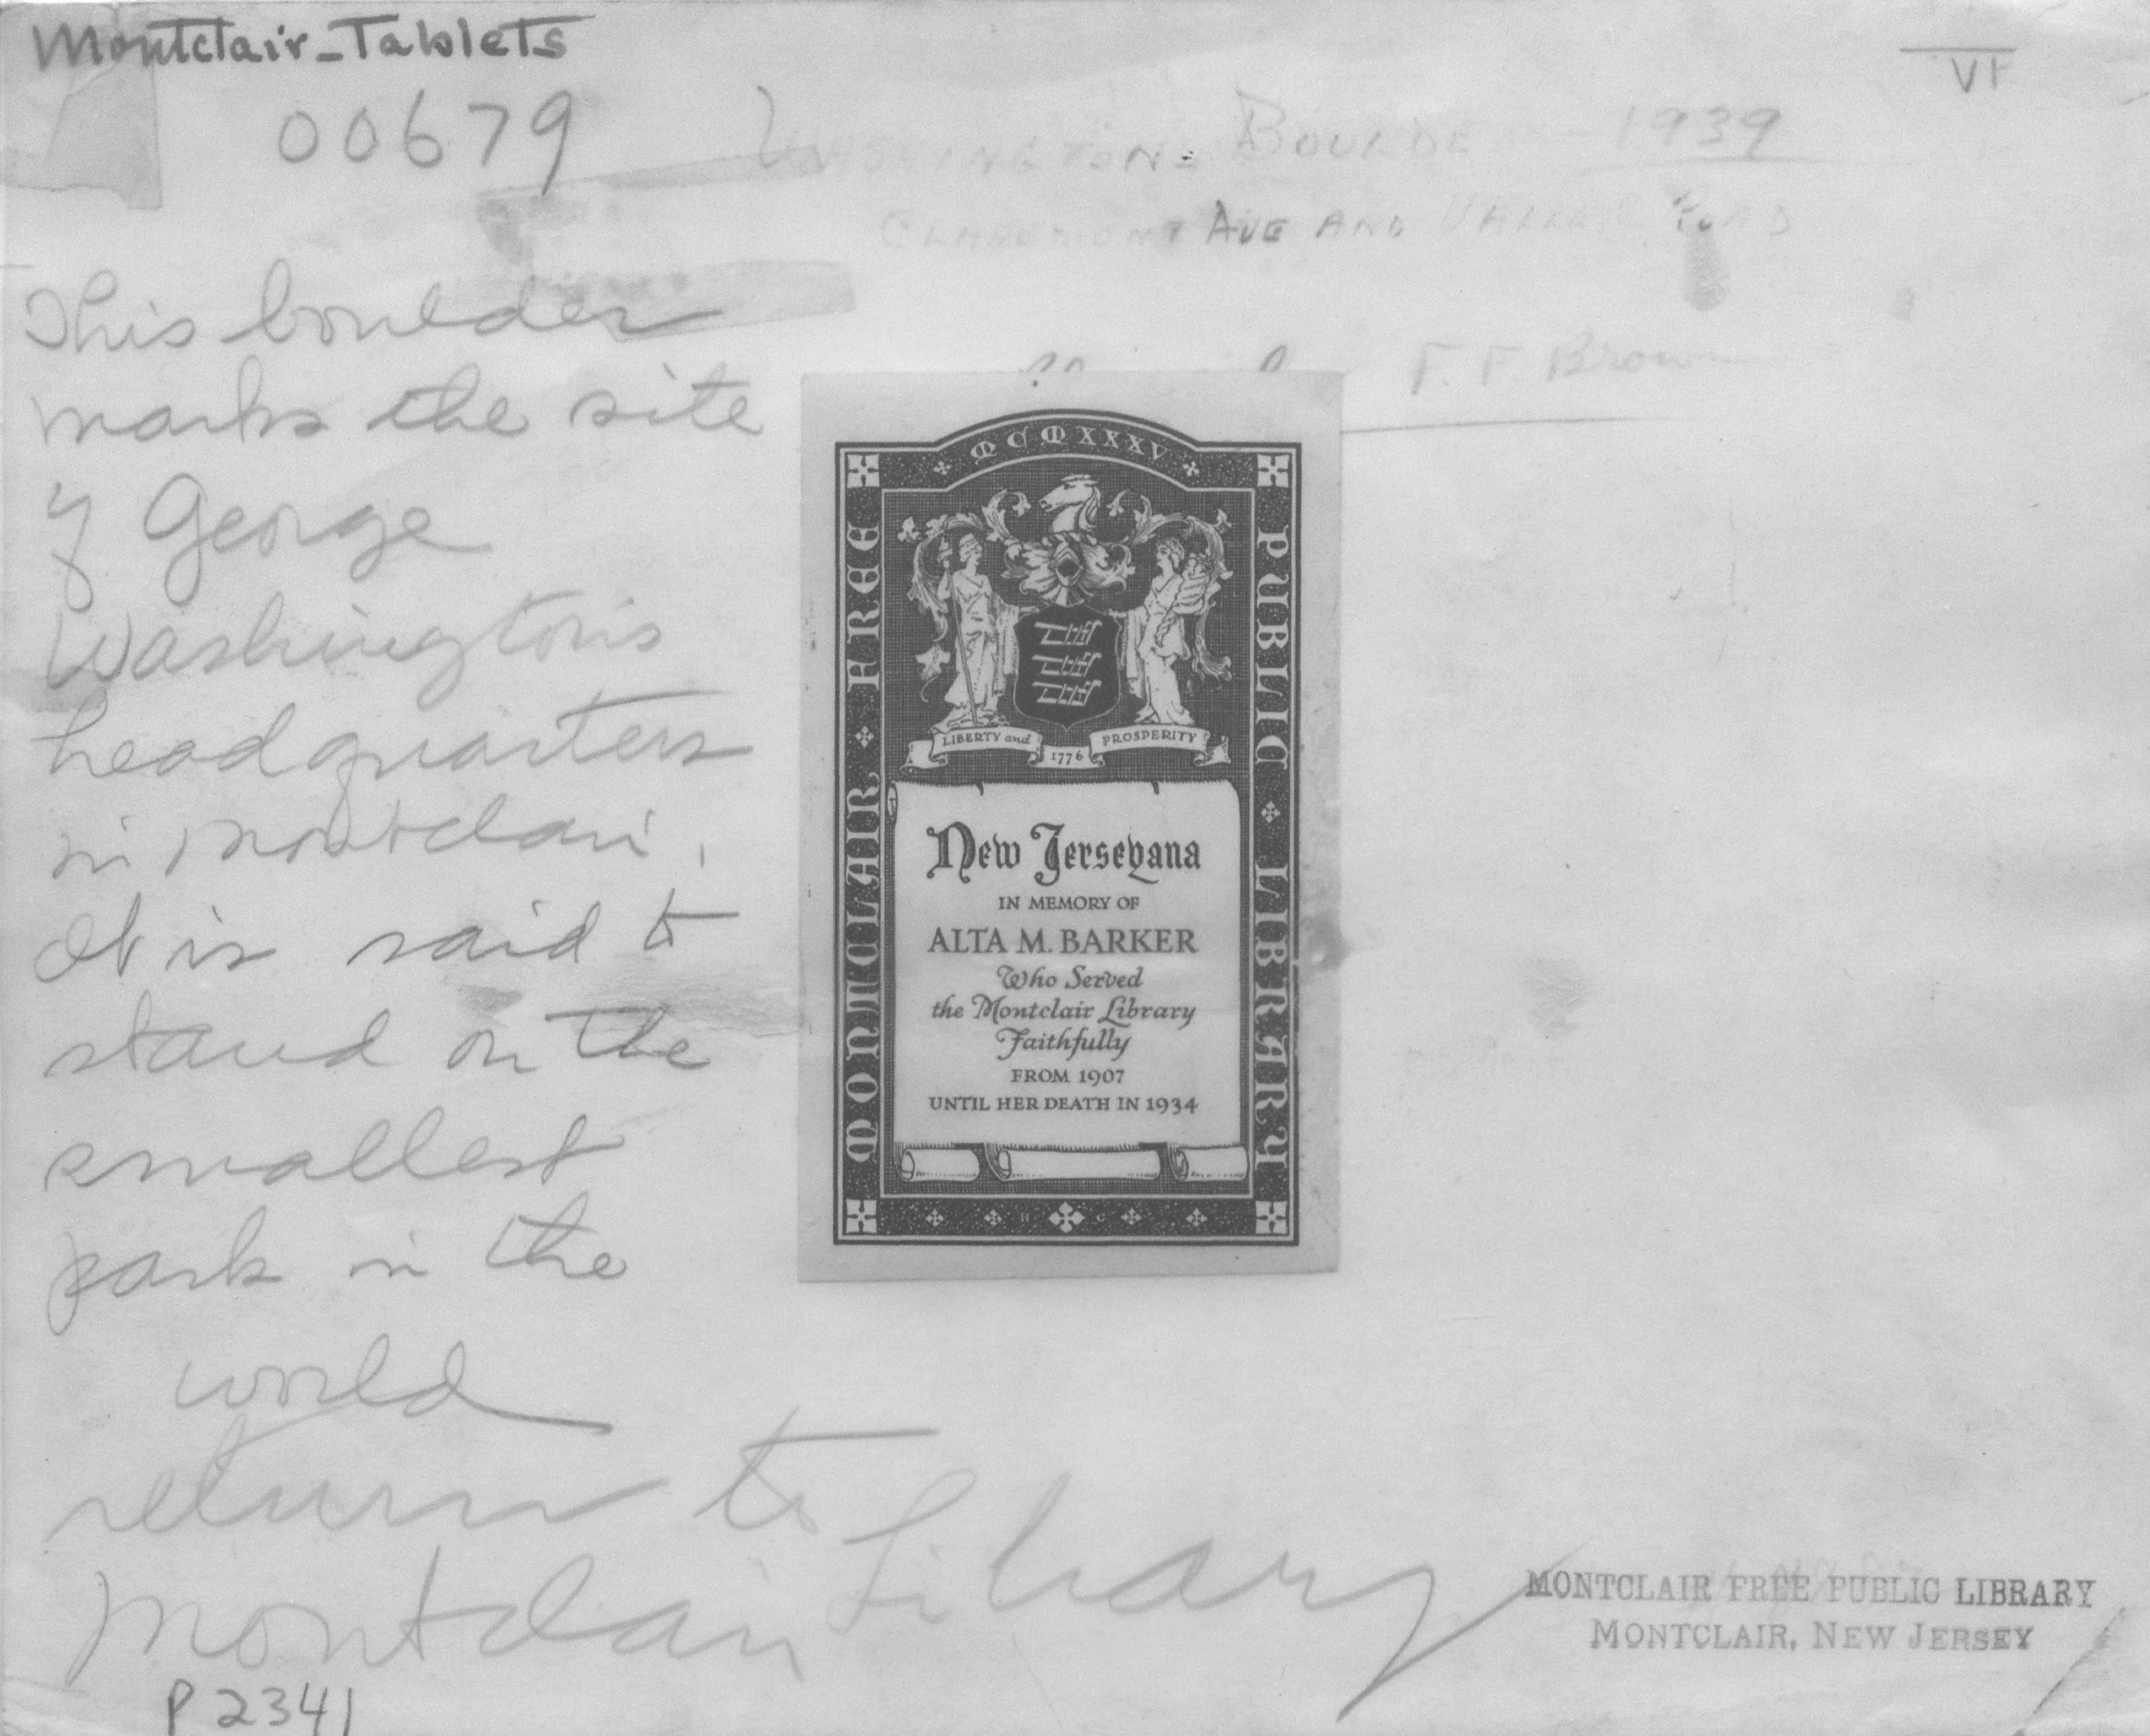 Montclair-Tablets
VI
00679
WASHINGTON - BOULDER - 1939
CLAREMONT AVE AND VALLEY ROAD
F. F. Brown
This boulder
marks the site
of George
Washington's
headquarters
in Montclair.
It is said to
stand on the
smallest
park in the
world
return to
Montclair Library
P2341
MCMXXXV
MONTCLAIR FREE
PUBLIC LIBRARY
LIBERTY and
1776
PROSPERITY
New Jerseyana
IN MEMORY OF
ALTA M. BARKER
Who Served
the Montclair Library
Faithfully
FROM 1907
UNTIL HER DEATH IN 1934
MONTCLAIR FREE PUBLIC LIBRARY
MONTCLAIR, NEW JERSEY